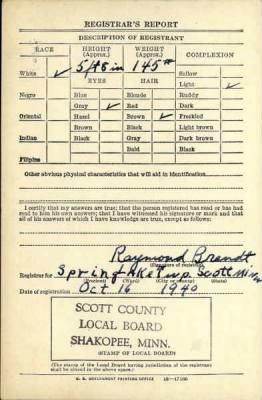 REGISTRAR'S REPORT
DESCRIPTION OF REGISTRANT
RACE HEIGHT (Approx.) WEIGHT (Approx.) COMPLEXION
White ✓ 5/ 145# Sallow
EYES HAIR Light ✓
Negro Blue Blonde Ruddy
Gray ✓ Red Dark
Oriental Hazel Brown ✓ Freckled
Brown Black Light brown
Indian Black Gray Dark brown
Bald Black
Filipino
Other obvious physical characteristics that will aid in identification
I certify that my answers are true; that the person registered has read or has had read to him his own answers; that I have witnessed his signature or mark and that all of his answers of which I have knowledge are true, except as follows:
Raymond Brandt
(Signature of registrar)
Registrar for Spring Lake Twp. Scott Minn
(Precinct) (Ward) (City or county) (State)
Date of registration Oct 16 1940
SCOTT COUNTY
LOCAL BOARD
SHAKOPEE, MINN.
(STAMP OF LOCAL BOARD)
(The stamp of the Local Board having jurisdiction of the registrant shall be placed in the above space.)
U. S. GOVERNMENT PRINTING OFFICE 16—17105